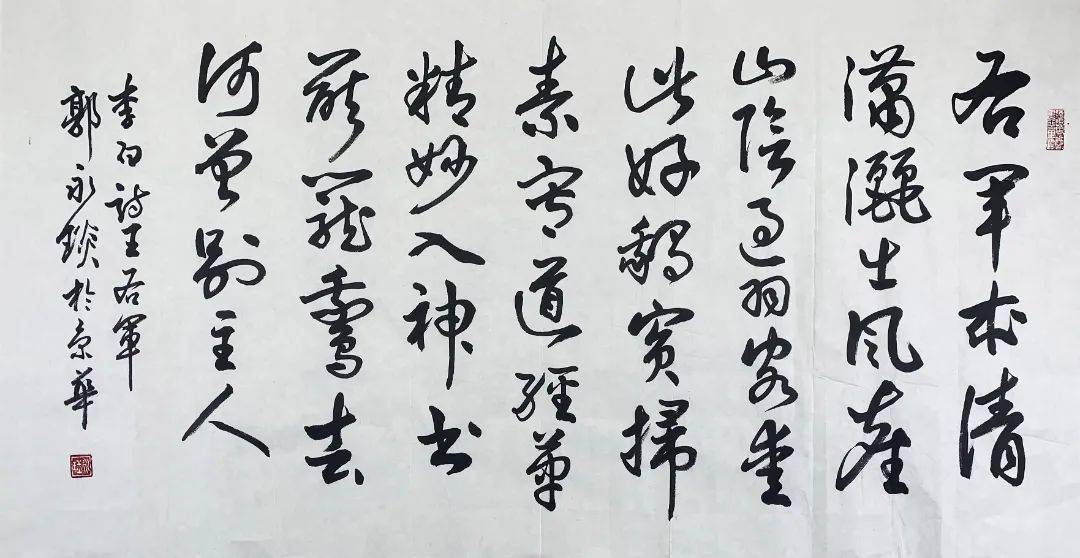 右軍本清
瀟灑出風塵
山陰過羽客愛
此好鵝賓掃
素寫道經筆
精妙入神書
罷籠鵞去
何曾別主人
李白詩王右軍
郭永琰於京華